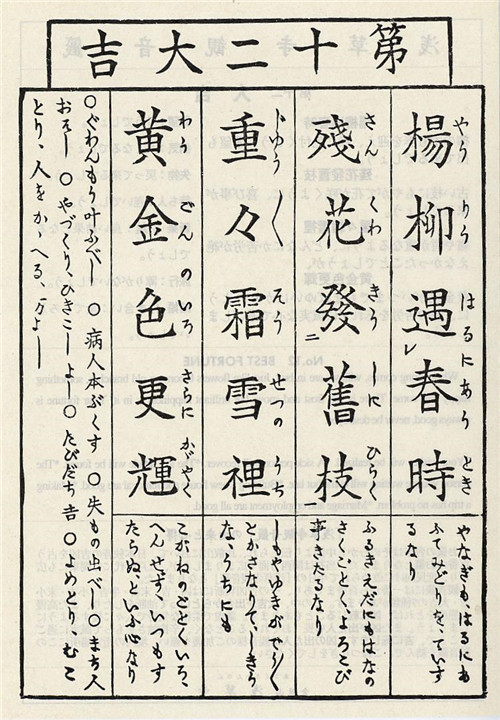 第十二大吉
楊柳遇春時
やうりうはるにあうとき
やなぎも、はるにあ
ふてみどりを、ていす
るなり
殘花發舊枝
ざんくわきうしにひらく
ふるきえだにもはなの
さくごとく、よろこび
事きたるなり
重々霜雪裡
ぢゆうじくそうせつのうち
しもやゆきが
とかさなり
なうちにも
黄金色更輝
わうごんのいろさらにかゞやく
こがねは、いろ、
へんせず、いつもす
たらぬ、といふ心なり
○ぐわんもう叶ふべし ○病人本ぶくす ○失もの出べし○まち人
おそし ○やづくり、ひきこしよし ○たびだち吉 ○よめとりむこ
とり、人をかゝへる、万よし